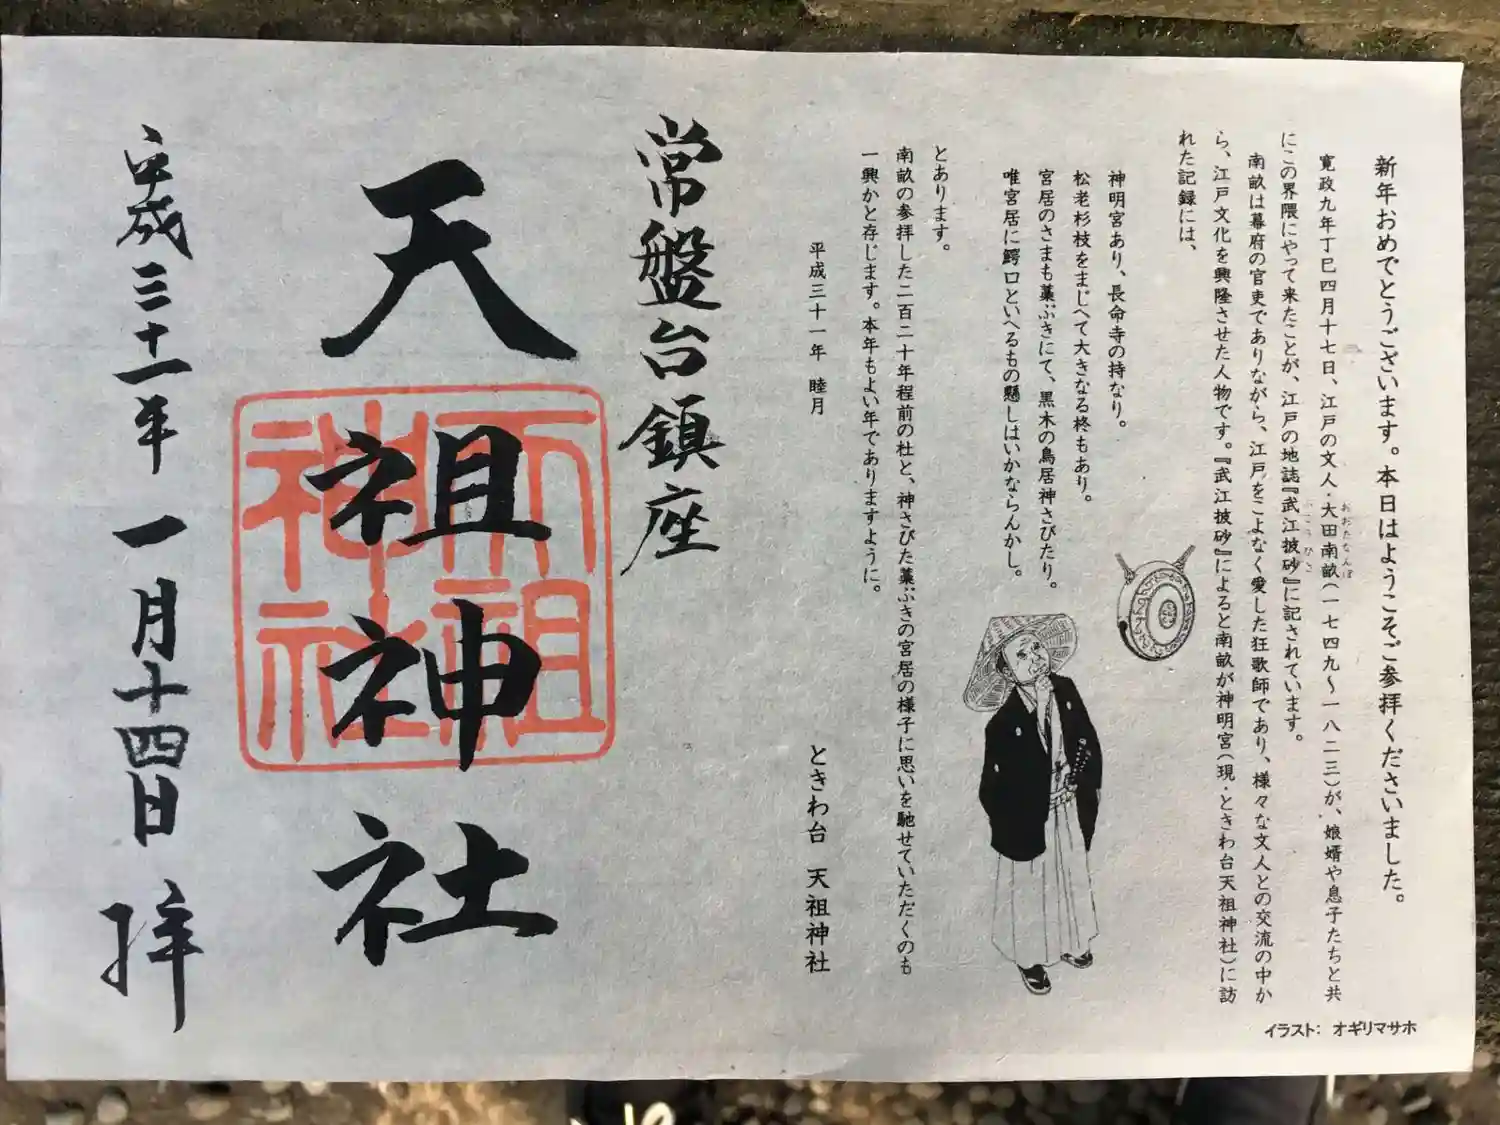 新年おめでとうございます。本日はようこそご参拝くださいました。
寛政九年丁巳四月十七日、江戸の文人・大田南畝(一七四九〜一八二三)が、娘婿や息子たちと共
おおたなんぽ
にこの界隈にやって来たことが、江戸の地誌『武江披砂』に記されています。
ぶこうひさ
南畝は幕府の官吏でありながら、江戸をこよなく愛した狂歌師であり、様々な文人との交流の中か
ら、江戸文化を興隆させた人物です。『武江披砂』によると南畝が神明宮(現・ときわ台天祖神社)に訪
れた記録には、
神明宮あり、長命寺の持なり。
松老杉枝をまじへて大きなる柊もあり。
宮居のさまも藁ぶきにて、黒木の鳥居神さびたり。
唯宮居に鰐口といへるもの懸しはいかならんかし。
とあります。
南畝の参拝した二百二十年程前の杜と、神さびた藁ぶきの宮居の様子に思いを馳せていただくのも
一興かと存じます。本年もよい年でありますように。
平成三十一年 睦月
ときわ台 天祖神社
イラスト: オギリマサホ
常盤台鎮座
天祖神社
天祖
神社
平成三十一年 一月十四日 拝